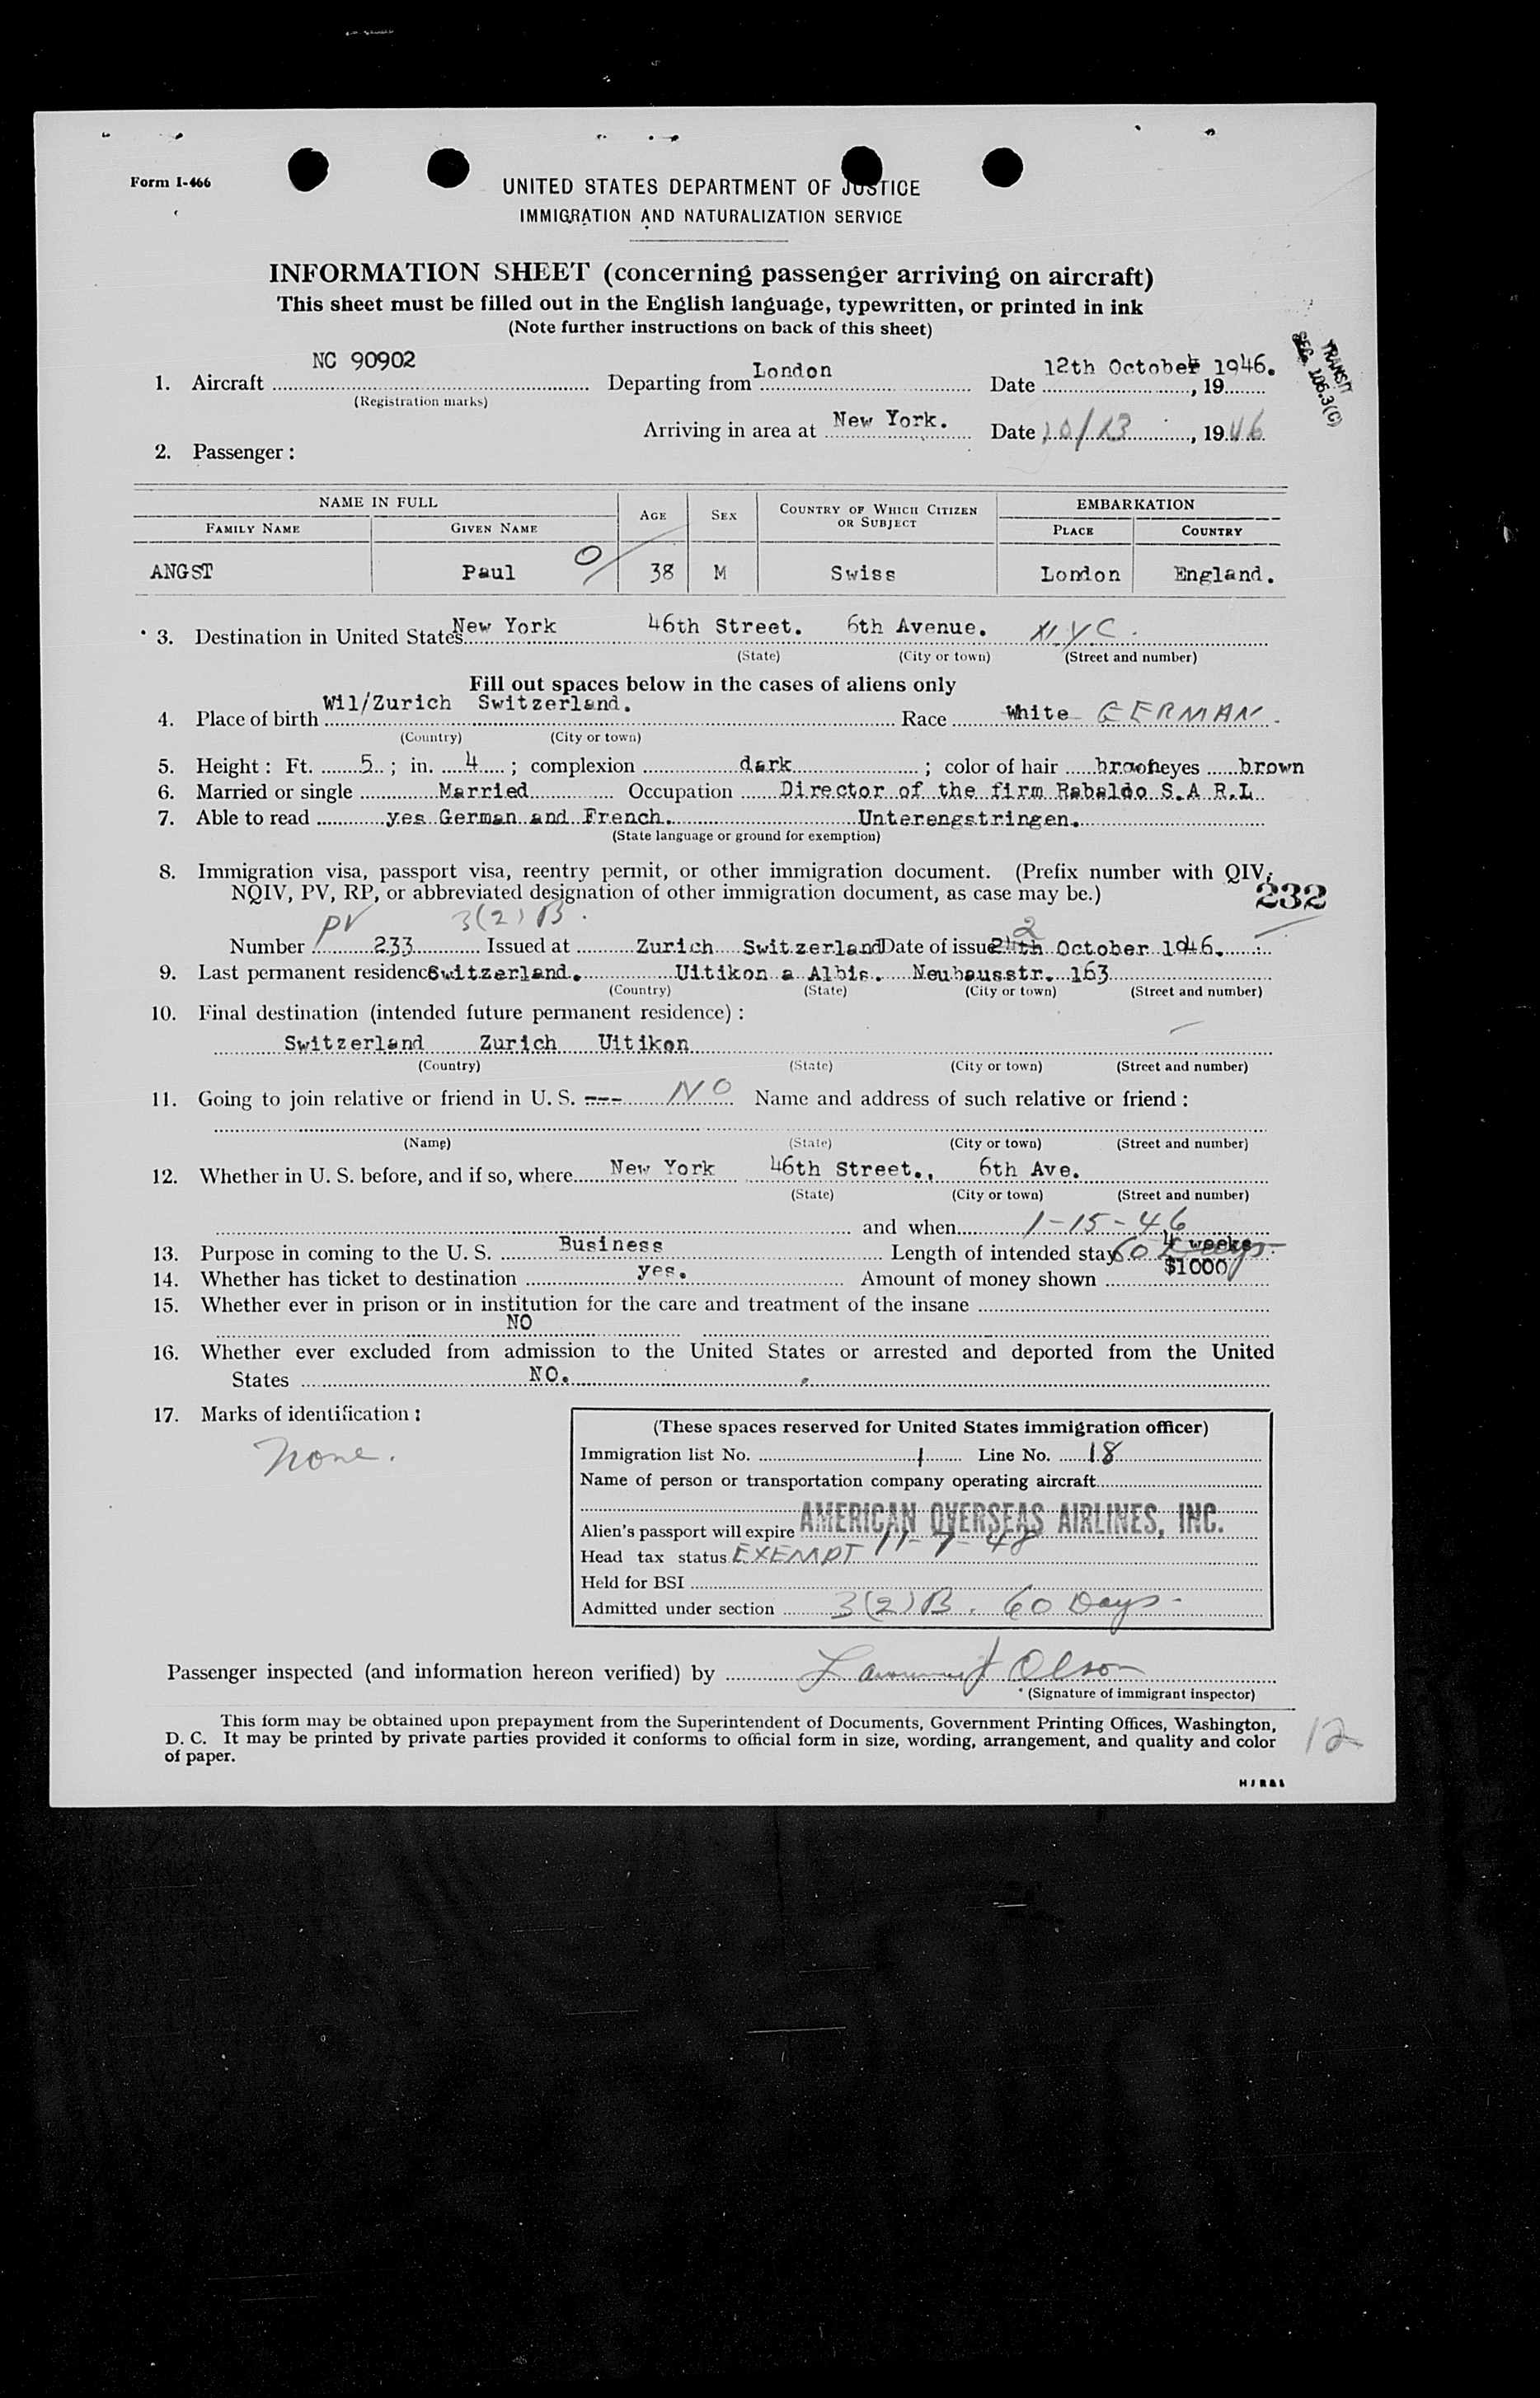 Form I-466
UNITED STATES DEPARTMENT OF JUSTICE
IMMIGRATION AND NATURALIZATION SERVICE
INFORMATION SHEET (concerning passenger arriving on aircraft)
This sheet must be filled out in the English language, typewritten, or printed in ink
(Note further instructions on back of this sheet)
TRANSIT
SEC. 106.3(C)
1. Aircraft NC 90902 Departing from London Date 12th October 1946., 19
(Registration marks)
Arriving in area at New York. Date 10/13, 1946
2. Passenger:
NAME IN FULL AGE SEX COUNTRY OF WHICH CITIZEN OR SUBJECT EMBARKATION
FAMILY NAME GIVEN NAME PLACE COUNTRY
ANGST Paul 38 M Swiss London England.
3. Destination in United States New York 46th Street. 6th Avenue. NYC.
(State) (City or town) (Street and number)
Fill out spaces below in the cases of aliens only
4. Place of birth Wil/Zurich Switzerland. Race White GERMAN
(Country) (City or town)
5. Height: Ft. 5; in. 4; complexion dark; color of hair brown eyes brown
6. Married or single Married Occupation Director of the firm Rabaldo S.A R.L
7. Able to read yes German and French. Unterengstringen.
(State language or ground for exemption)
8. Immigration visa, passport visa, reentry permit, or other immigration document. (Prefix number with QIV,
NQIV, PV, RP, or abbreviated designation of other immigration document, as case may be.)
232
PV 3(2) B. 2
Number 233 Issued at Zurich Switzerland Date of issue 24th October 1946.
9. Last permanent residence Switzerland. Uitikon a Albis. Neuhausstr. 163
(Country) (State) (City or town) (Street and number)
10. Final destination (intended future permanent residence):
Switzerland Zurich Uitikon
(Country) (State) (City or town) (Street and number)
11. Going to join relative or friend in U. S. --- NO Name and address of such relative or friend:
(Name) (State) (City or town) (Street and number)
12. Whether in U. S. before, and if so, where New York 46th Street., 6th Ave.
(State) (City or town) (Street and number)
and when 1-15-46
13. Purpose in coming to the U. S. Business Length of intended stay 60 Days 4 weeks
14. Whether has ticket to destination yes. Amount of money shown $1000
15. Whether ever in prison or in institution for the care and treatment of the insane
NO
16. Whether ever excluded from admission to the United States or arrested and deported from the United
States NO.
17. Marks of identification:
None.
(These spaces reserved for United States immigration officer)
Immigration list No. 1 Line No. 18
Name of person or transportation company operating aircraft
AMERICAN OVERSEAS AIRLINES, INC.
Alien's passport will expire 11-7-48
Head tax status EXEMPT
Held for BSI
Admitted under section 3(2) B. 60 Days-
Passenger inspected (and information hereon verified) by Olson
(Signature of immigrant inspector)
This form may be obtained upon prepayment from the Superintendent of Documents, Government Printing Offices, Washington,
D. C. It may be printed by private parties provided it conforms to official form in size, wording, arrangement, and quality and color
of paper.
12